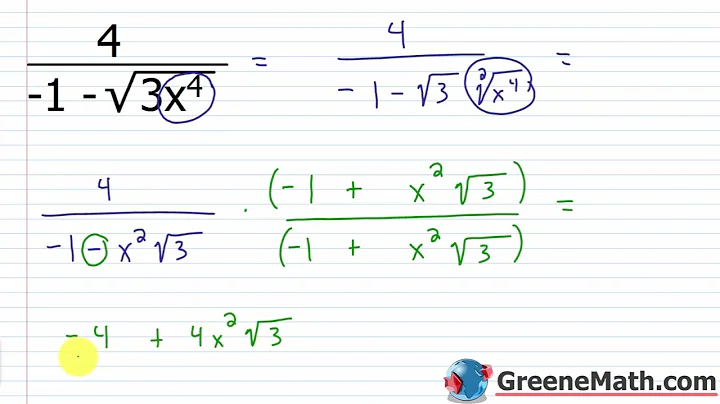 4 / (-1 - √3x⁴) = 4 / (-1 - √3 ²√x⁴) =
4 / (-1 - x²√3) · (-1 + x²√3) / (-1 + x²√3) =
-4 + 4x²√3
GreeneMath.com